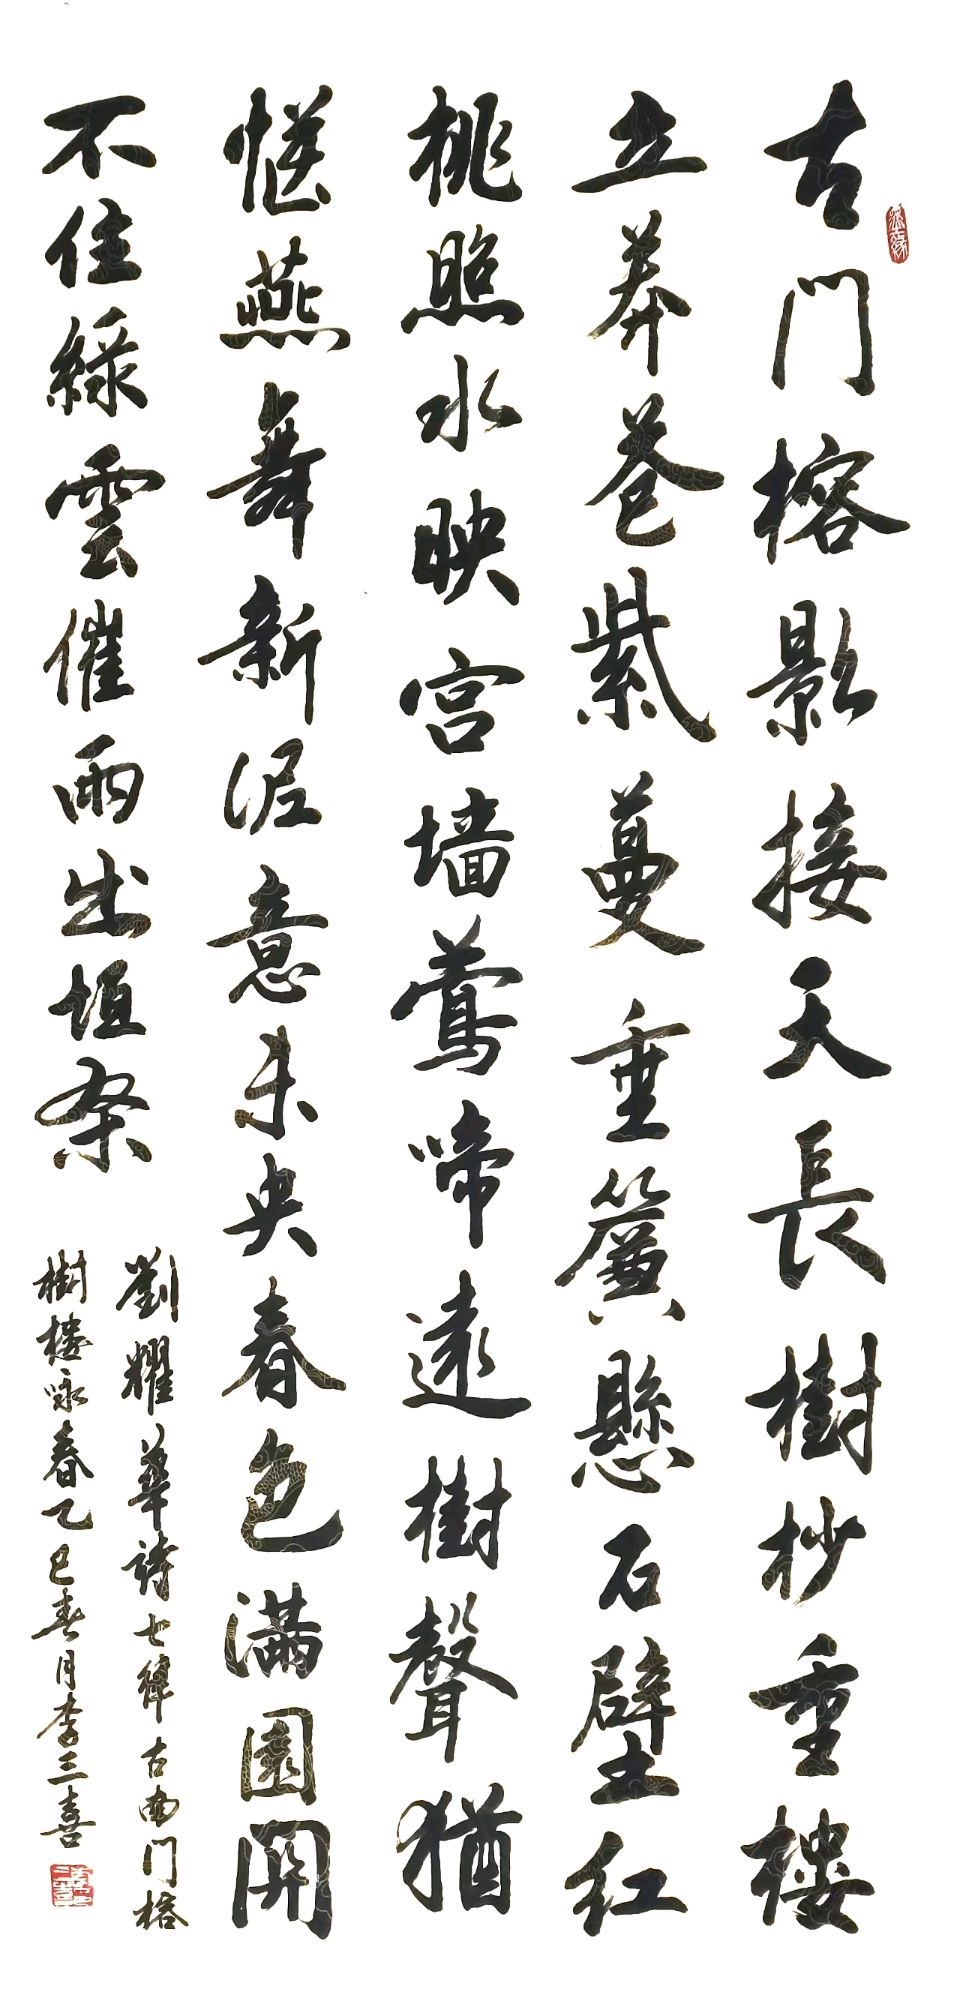 古門榕影接天長樹杪重樓
立莽苍紫蔓垂簾懸石壁红
桃照水映宫墙鶯啼遠樹聲猶
惬燕舞新泥意未央春色满園開
不住綠雲催雨出垣桑
劉耀華詩七律古南門榕
樹樓咏春乙巳春月李三喜